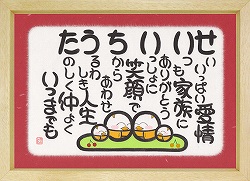 せいいっぱい愛情
いつも家族に
ありがとう
いっしょに笑顔で
ちからあわせ
うるわしき人生
たのしく仲よく
いつまでも